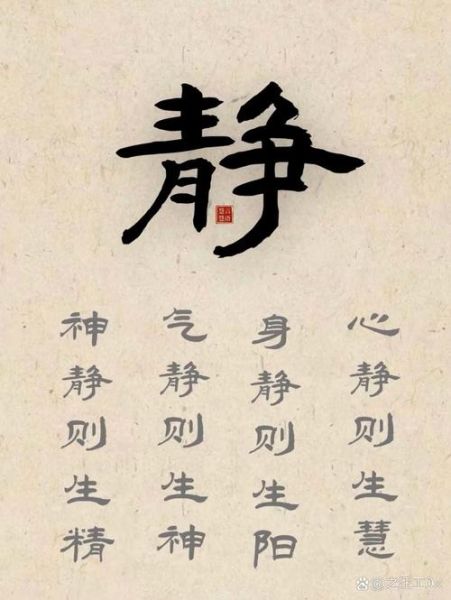 静
心静则生慧
身静则生阳
气静则生神
神静则生精